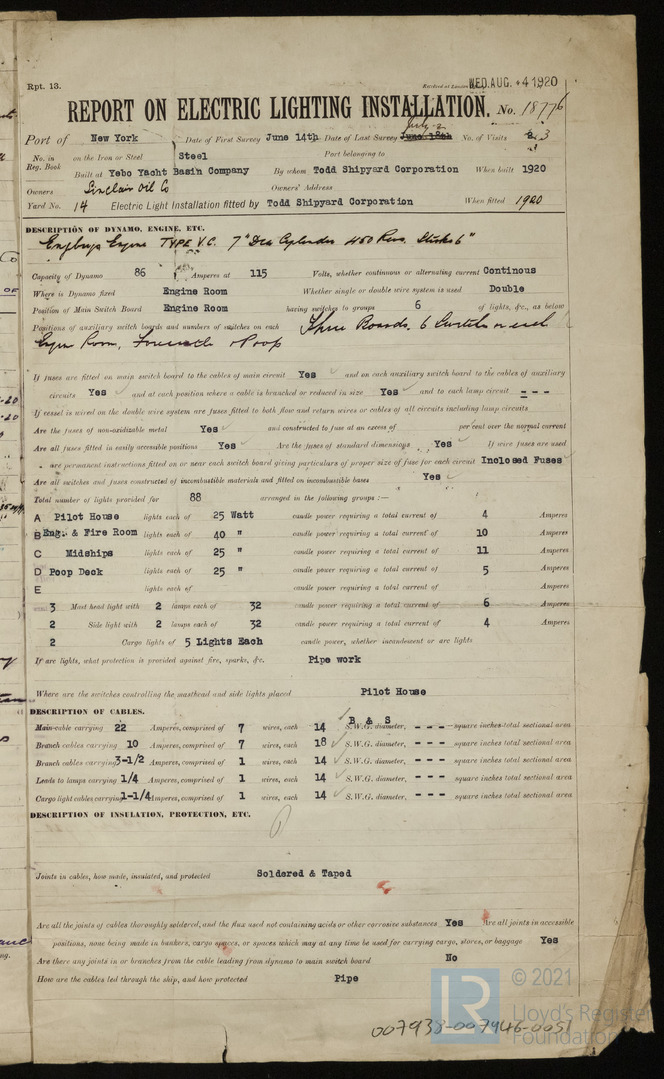 Rpt. 13.
Received at London WED. AUG. 4 1920
REPORT ON ELECTRIC LIGHTING INSTALLATION. No. 18776
July 2
Port of New York Date of First Survey June 14th Date of Last Survey June 18th No. of Visits 2 3
No. in Reg. Book on the Iron or Steel Steel Port belonging to
Built at Yebo Yacht Basin Company By whom Todd Shipyard Corporation When built 1920
Owners Sinclair Oil Co Owners' Address
Yard No. 14 Electric Light Installation fitted by Todd Shipyard Corporation When fitted 1920
DESCRIPTION OF DYNAMO, ENGINE, ETC.
Engine TYPE V.C. 7" Dia Cylinder 450 Revs. 6"
Capacity of Dynamo 86 Amperes at 115 Volts, whether continuous or alternating current Continous
Where is Dynamo fixed Engine Room Whether single or double wire system is used Double
Position of Main Switch Board Engine Room having switches to groups 6 of lights, &c., as below
Positions of auxiliary switch boards and numbers of switches on each Three Boards. 6 on each
Room, Poop
If fuses are fitted on main switch board to the cables of main circuit Yes and on each auxiliary switch board to the cables of auxiliary
circuits Yes and at each position where a cable is branched or reduced in size Yes and to each lamp circuit - - -
If vessel is wired on the double wire system are fuses fitted to both flow and return wires or cables of all circuits including lamp circuits
Are the fuses of non-oxidizable metal Yes and constructed to fuse at an excess of per cent over the normal current
Are all fuses fitted in easily accessible positions Yes Are the fuses of standard dimensions Yes If wire fuses are used
are permanent instructions fitted on or near each switch board giving particulars of proper size of fuse for each circuit Inclosed Fuses
Are all switches and fuses constructed of incombustible materials and fitted on incombustible bases Yes
Total number of lights provided for 88 arranged in the following groups :—
A Pilot House lights each of 25 Watt candle power requiring a total current of 4 Amperes
B Eng. & Fire Room lights each of 40 " candle power requiring a total current of 10 Amperes
C Midships lights each of 25 " candle power requiring a total current of 11 Amperes
D Poop Deck lights each of 25 " candle power requiring a total current of 5 Amperes
E lights each of candle power requiring a total current of Amperes
3 Mast head light with 2 lamps each of 32 candle power requiring a total current of 6 Amperes
2 Side light with 2 lamps each of 32 candle power requiring a total current of 4 Amperes
2 Cargo lights of 5 Lights Each candle power, whether incandescent or arc lights
If arc lights, what protection is provided against fire, sparks, &c. Pipe work
Where are the switches controlling the masthead and side lights placed Pilot House
DESCRIPTION OF CABLES.
B & S
Main cable carrying 22 Amperes, comprised of 7 wires, each 14 S.W.G. diameter, - - - square inches total sectional area
Branch cables carrying 10 Amperes, comprised of 7 wires, each 18 S.W.G. diameter, - - - square inches total sectional area
Branch cables carrying 3-1/2 Amperes, comprised of 1 wires, each 14 S.W.G. diameter, - - - square inches total sectional area
Leads to lamps carrying 1/4 Amperes, comprised of 1 wires, each 14 S.W.G. diameter, - - - square inches total sectional area
Cargo light cables carrying 1-1/4 Amperes, comprised of 1 wires, each 14 S.W.G. diameter, - - - square inches total sectional area
DESCRIPTION OF INSULATION, PROTECTION, ETC.
Joints in cables, how made, insulated, and protected Soldered & Taped
Are all the joints of cables thoroughly soldered, and the flux used not containing acids or other corrosive substances Yes Are all joints in accessible
positions, none being made in bunkers, cargo spaces, or spaces which may at any time be used for carrying cargo, stores, or baggage Yes
Are there any joints in or branches from the cable leading from dynamo to main switch board No
How are the cables led through the ship, and how protected Pipe
LR © 2021
Lloyd's Register
Foundation
007938-007946-0051